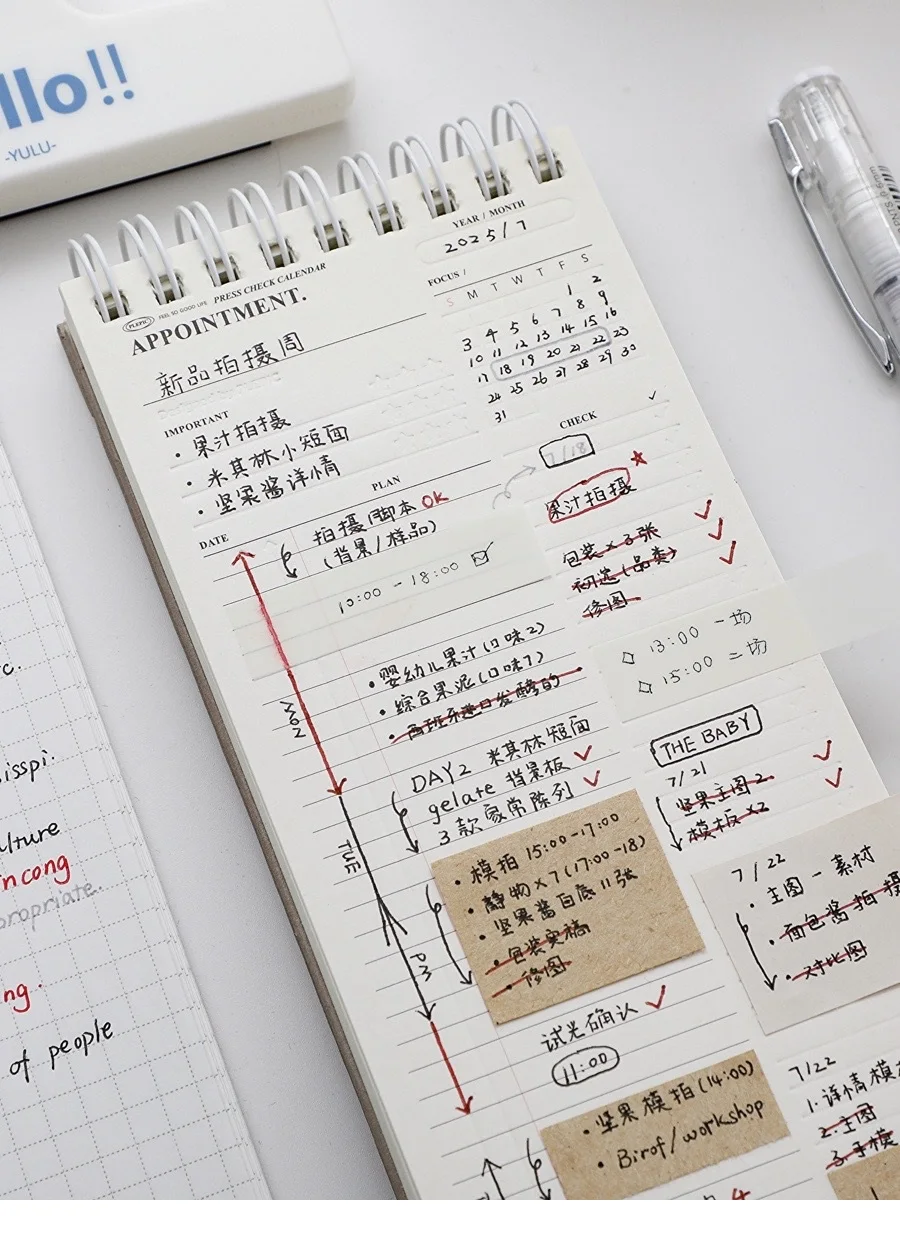 llo!!
-YULU-
PLEPIC
FEEL SO GOOD LIFE PRESS CHECK CALENDAR
APPOINTMENT.
YEAR / MONTH
2025/7
FOCUS /
S M T W T F S
1 2
3 4 5 6 7 8 9
10 11 12 13 14 15 16
17 18 19 20 21 22 23
24 25 26 27 28 29 30
31
新品拍摄周
IMPORTANT
• 果汁拍摄
• 米其林小短面
• 坚果酱详情
DATE
PLAN
CHECK
拍摄脚本 OK
(背景/样品)
10:00 - 18:00
• 婴幼儿果汁(口味2)
• 综合果泥(口味7)
• 西班牙进口发酵的
MON
DAY2 米其林短面
gelate 背景板
3款家常陈列
TUE
• 模拍 15:00-17:00
• 静物×7(17:00-18)
• 坚果酱白底11张
• 包装实稿
• 修图
PM
试光确认
11:00
• 坚果模拍(14:00)
• Birof/workshop
7/18
果汁拍摄
包装×3张
初选(品类)
修图
13:00 一场
15:00 二场
THE BABY
7/21
坚果主图2
模板×2
7/22
• 主图一素材
• 面包酱拍摄
• 对比图
7/22
1. 详情模
2. 主图
3. 手模
c.
isspi.
ulture
ncong
propriate.
ng.
of people